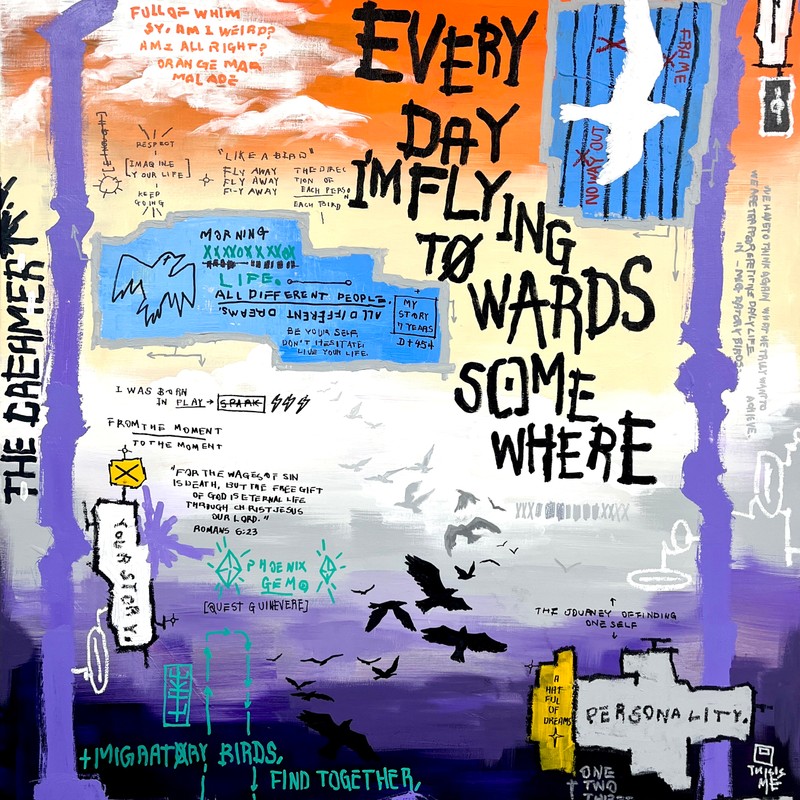 FULL OF WHIM
SY. AM I WEIRD?
AM I ALL RIGHT?
ORANGE MAR
MALADE
EVERY
DAY
I'M FLYING
TO
WARDS
SOME
WHERE
FRAME
NO WAY OUT
RESPECT
[IMAGINE
YOUR LIFE]
KEEP
GOING
"LIKE A BIRD"
FLY AWAY
FLY AWAY
FLY AWAY
THE DIREC
TION OF
EACH PERSO
EACH THIRD
MORNING
XXXXOXXXXOX
LIFE.
ALL DIFFERENT PEOPLE.
ALL DIFFERENT DREAMS.
BE YOUR SELF
DON'T HESITATE.
LIVE YOUR LIFE.
MY
STORY
7 YEARS
D+454
THE DREAMER
I WAS BORN
IN PLAY → SPARK
FROM THE MOMENT
TO THE MOMENT
"FOR THE WAGES OF SIN
IS DEATH, BUT THE FREE GIFT
OF GOD IS ETERNAL LIFE
THROUGH CHRIST JESUS
OUR LORD."
ROMANS 6:23
YOUR STORY.
PHOENIX
GEM
[QUEST GUINEVERE]
THE JOURNEY OF FINDING
ONE SELF
A
HAT
FUL
OF
DREAMS
PERSONALITY.
LIKE
+MIGRATORY BIRDS,
FIND TOGETHER,
ONE
TWO
THREE
THIS IS
ME
WE HAVE TO THINK AGAIN WHAT WE TRULY WANT TO
ACHIEVE.